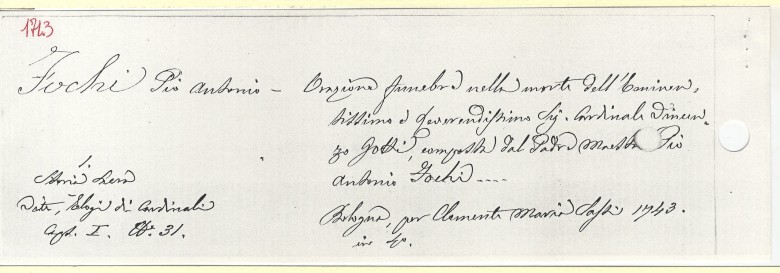 1743
Fochi Pio Antonio - Orazione funebre nella morte dell'Eminen,
tissimo e Reverendissimo Sig. Cardinale Vincen,
zo Gotti, composta dal Padre Maestro Pio
Antonio Fochi ----
Bologna, per Clemente Maria Sassi 1743.
in 4°.
Storia
Date, Elogi di Cardinali
Cart. I. N° 31.